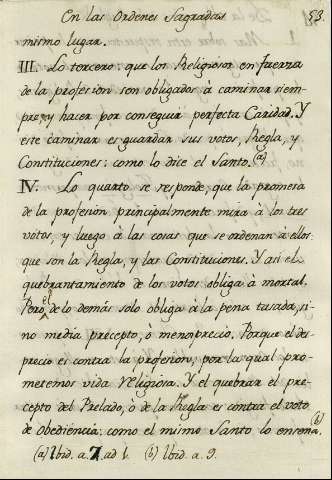 En las Ordenes Sagradas 53.
mismo lugar.
III. Lo tercero que los Religiosos en fuerza
de la profesion son obligados à caminar siem-
pre, y hacer por conseguir perfecta Caridad. Y
este caminar es guardar sus votos, Regla, y
Constituciones: como lo dice el Santo. (a)
IV. Lo quarto se responde, que la promesa
de la profesion principalmente mira à los tres
votos, y luego à las cosas que se ordenan à ellos:
que son la Regla, y las Constituciones. Y asi el
quebrantamiento de los votos obliga à mortal.
Pero, el de lo demás solo obliga à la pena tasada, si-
no media precepto, ò menosprecio. Porque el des-
precio es contra la profesion, por la qual pro-
metemos vida religiosa. Y el quebrar el pre-
cepto del Prelado, ò de la Regla es contra el voto
de obediencia: como el mismo Santo lo enseña. (b)
(a) Ibid. a. 1. ad 1. (b) Ibid. a. 9.